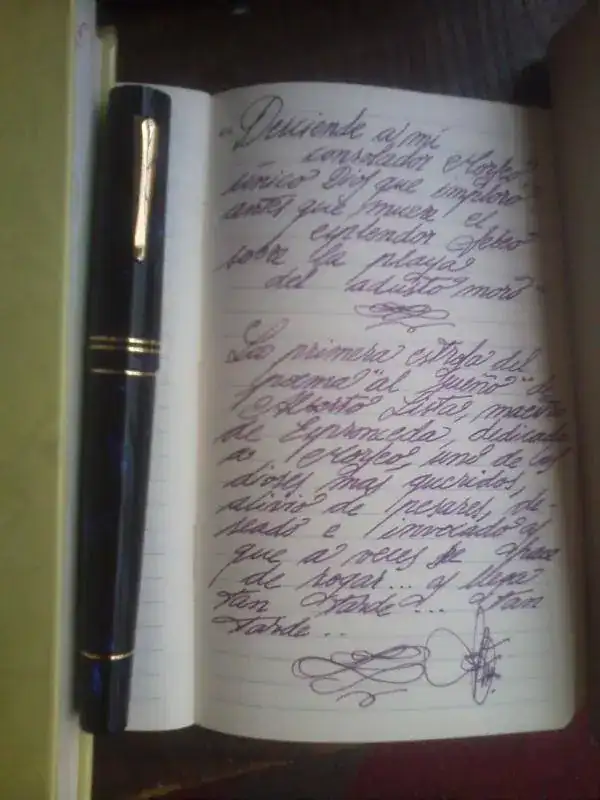 "Desciende a mí
consolador Morfeo
único Dios que imploro
antes que muera el
esplendor febeo
sobre la playa
del adusto moro"
La primera estrofa del
poema "al Sueño" de
Alberto Lista, maestro
de Espronceda, dedicada
a Morfeo, uno de los
dioses más queridos,
alivio de pesares, de-
seado e invocado y
que a veces se hace
de rogar... y llega
tan tarde... tan
tarde...